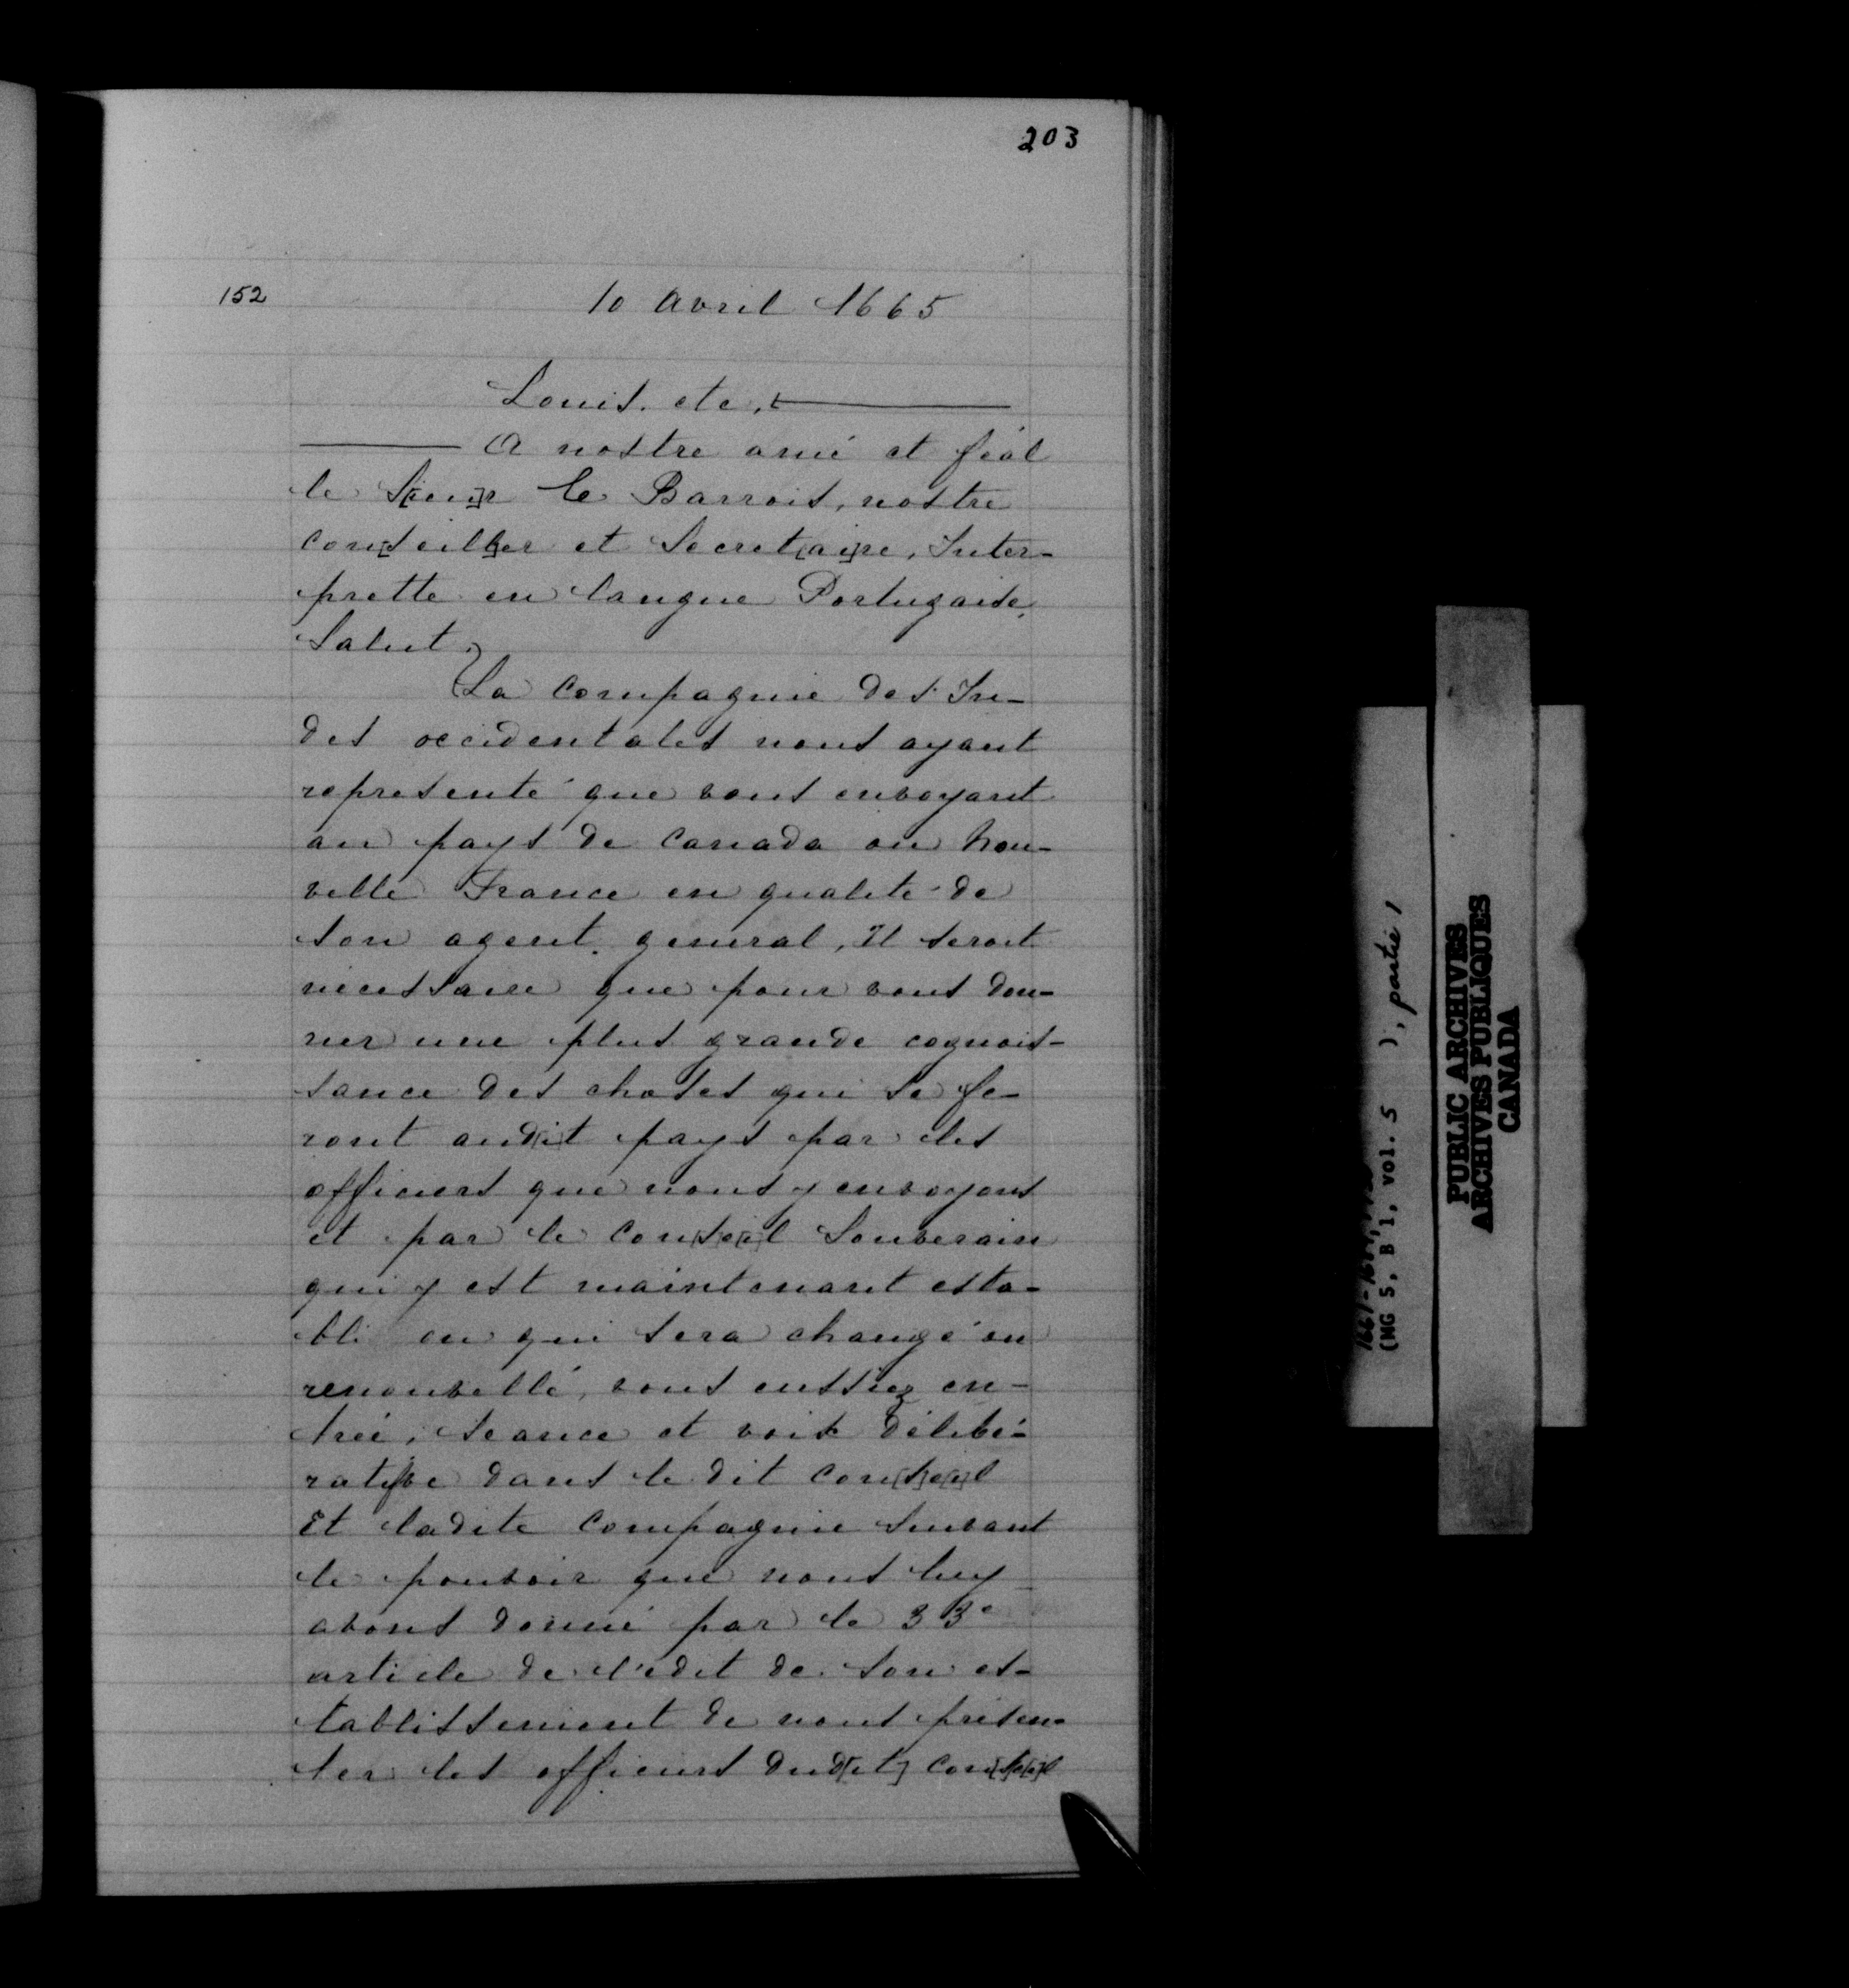 203
152
10 avril 1665
Louis. etc.
A nostre amé et féal
le S[ieu]r le Barrois, nostre
con[seill]er et Secret[ai]re, Inter-
prette en langue Portugaise,
Salut,
La Compagnie des In-
des occidentales nous ayant
representé que vous envoyant
au pays de Canada ou Nou-
velle France en qualité de
son agent general, Il seroit
nécessaire que pour vous don-
ner une plus grande cognois-
sance des choses qui se fe-
ront aud[i]t pays par les
officiers que nous y envoyons
et par le Con[s]e[i]l Souverain
qui y est maintenant esta-
bli ou qui sera changé ou
renouvellé, vous eussiez en-
trée, séance et voix délibé-
rative dans le dit Con[s]e[i]l
Et ladite Compagnie suivant
le pouvoir que nous luy
avons donné par le 33e
article de l'édit de son es-
tablissement de nous présen-
ter les officiers dud[it] Con[s]e[i]l
(MG 5, B 1, vol. 5 ), partie 1
PUBLIC ARCHIVES
ARCHIVES PUBLIQUES
CANADA